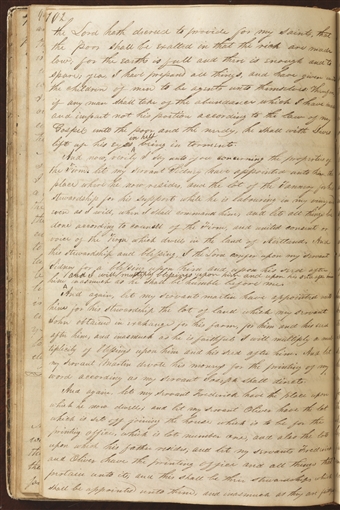 102
the Lord hath decreed to provide for my saints, that
the poor shall be exalted in that the rich are made
low; for the earth is full and there is enough and to
spare, yea I have prepared all things, and have given unto
the children of men to be agents unto themselves Therefore
if any man shall take of the abundance which I have made
and impart not his portion according to the law of my
Gospel unto the poor and the needy, he shall with
lift up his eyes in hell being in torment.
And now, verily I say unto you concerning the properties of
the Firm let my servant Sidney have appointed unto him the
place where he now resides, and the lot of the Tannery for his
stewardship for his support while he is labouring in my vineyard
even as I will, when I shall command him; and let all things be
done according to counsel of the Firm, and united consent or
voice of the Firm which dwell in the land of Kirtland. And
this stewardship and blessing, I the Lord confer upon my servant
Sidney for a blessing upon him and upon his seed after
him and I will multiply blessings upon him and upon his seed after
him inasmuch as he shall be humble before me
And again, let my servant Martin have appointed unto
him for his stewardship the lot of land which my servant
John obtained in exchange for his farm, for him and his seed
after him, and inasmuch as he is faithful I will multiply a mul
tiplicity of blessings upon him and his seed after him. And let
my servant Martin devote his moneys for the printing of my
word according as my servant Joseph shall direct.
And again let my servant Frederick have the place upon
which he now dwells, and let my servant Oliver have the lot
which is set off joining the house which is to be for the
printing office which is lot number one, and also the lot
upon which his father resides, and let my servants Frederick
and Oliver have the printing office and all things that
pertain unto it, and this shall be their stewardship which
shall be appointed unto them and inasmuch as they are faithful